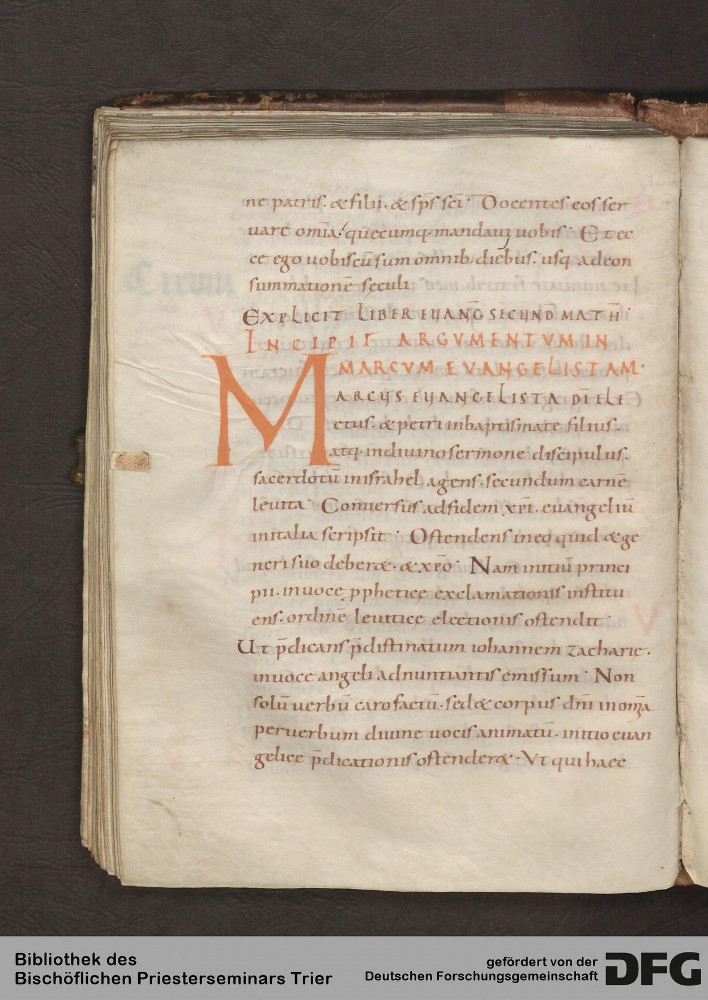 ne patris. & filii. & sp̄s sc̄i. Docentes eos ser
uare om̄ia. quęcumq. mandaui uobis. Et ec
ce ego uobiscū sum omnib. diebus. usq. ad con
summationē sęculi
EXPLICIT LIBER EUANḠ SECUNDM̄ MATH̄
INCIPIT ARGVMENTVM IN
MARCVM EVANGELISTAM.
MARCUS EUANGELISTA DĪ ELE
ctus. & petri in baptismate filius.
atq. in diuino sermone discipulus.
sacerdotiū in israhel agens. secundum carnē
leuita. Conuersus ad fidem xp̄i. euangeliū
in italia scripsit. Ostendens in eo quid & ge
neri suo deber&. & xp̄o. Nam initiū princi
pii. in uoce p̱pheticę exclamationis institu
ens. ordinē leuiticę electionis ostendit.
Ut p̄dicans p̄distinatum iohannem zacharie.
in uoce angeli adnuntiantis emissum. Non
solū uerbū caro factū. sed & corpus dn̄i in om̄a
per uerbum diuine uocis animatū. initio euan
gelicę p̄dicationis ostender&. Vt qui haec
Bibliothek des
Bischöflichen Priesterseminars Trier
gefördert von der
Deutschen Forschungsgemeinschaft
DFG